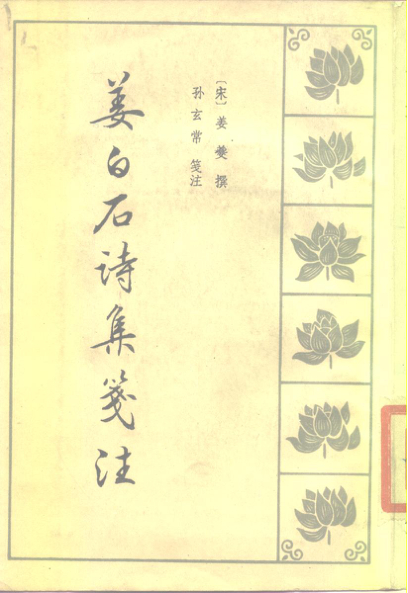 〔宋〕姜夔 撰
孙玄常 笺注
姜白石诗集笺注